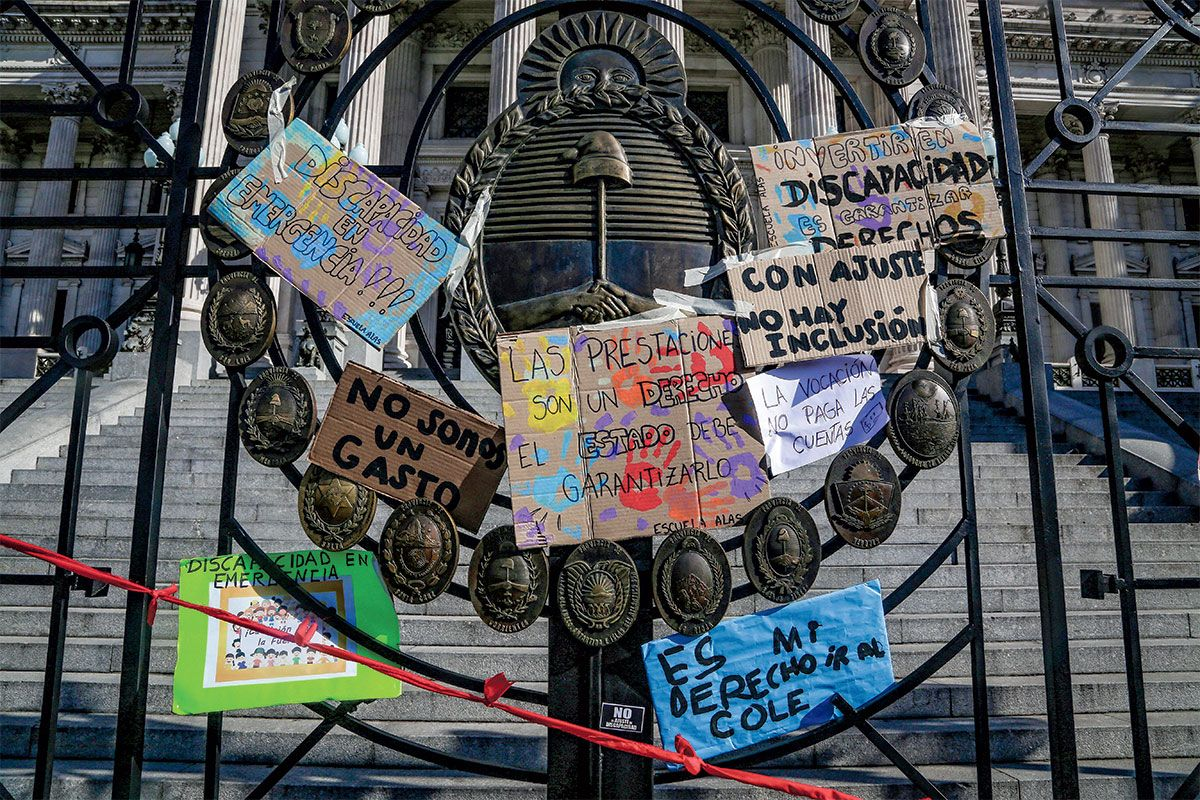 DISCAPACIDAD
EN
EMERGENCIA!!!
ESCUELA ALAS
INVERTIR EN
DISCAPACIDAD
ES GARANTIZAR
DERECHOS
ESCUELA ALAS
CON AJUSTE
NO HAY
INCLUSIÓN
LAS PRESTACIONE
SON UN DERECHO
EL ESTADO DEBE
GARANTIZARLO
ESCUELA ALAS
LA VOCACIÓN
NO PAGA LAS
CUENTAS
NO SOMOS
UN
GASTO
DISCAPACIDAD EN
EMERGENCIA
la Fue
ES MI
DERECHO IR AL
COLE
NO